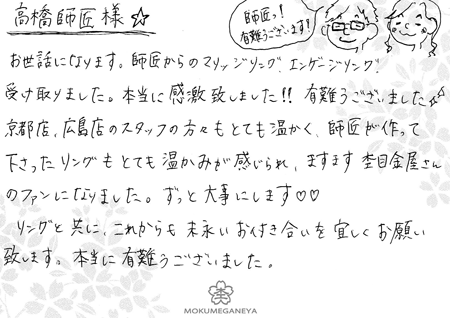 高橋師匠様☆
師匠っ!
有難うございます!
お世話になります。師匠からのマリッジリング、エンゲージリング、
受け取りました。本当に感激致しました!! 有難うございました☆
京都店、広島店のスタッフの方々もとても温かく、師匠が作って
下さったリングもとても温かみが感じられ、ますます杢目金屋さん
のファンになりました。ずっと大事にします♡♡
リングと共に、これからも末永いお付き合いを宜しくお願い
致します。本当に有難うございました。
MOKUMEGANEYA